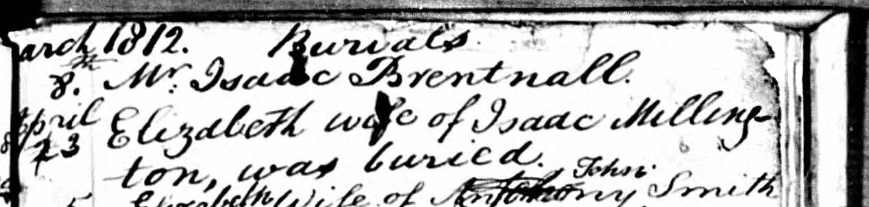 arch 1812. Burials
8.th Mr. Isaac Brentnall.
April
23 Elizabeth wife of Isaac Milling-
ton, was buried.
Elizabeth Wife of John Smith